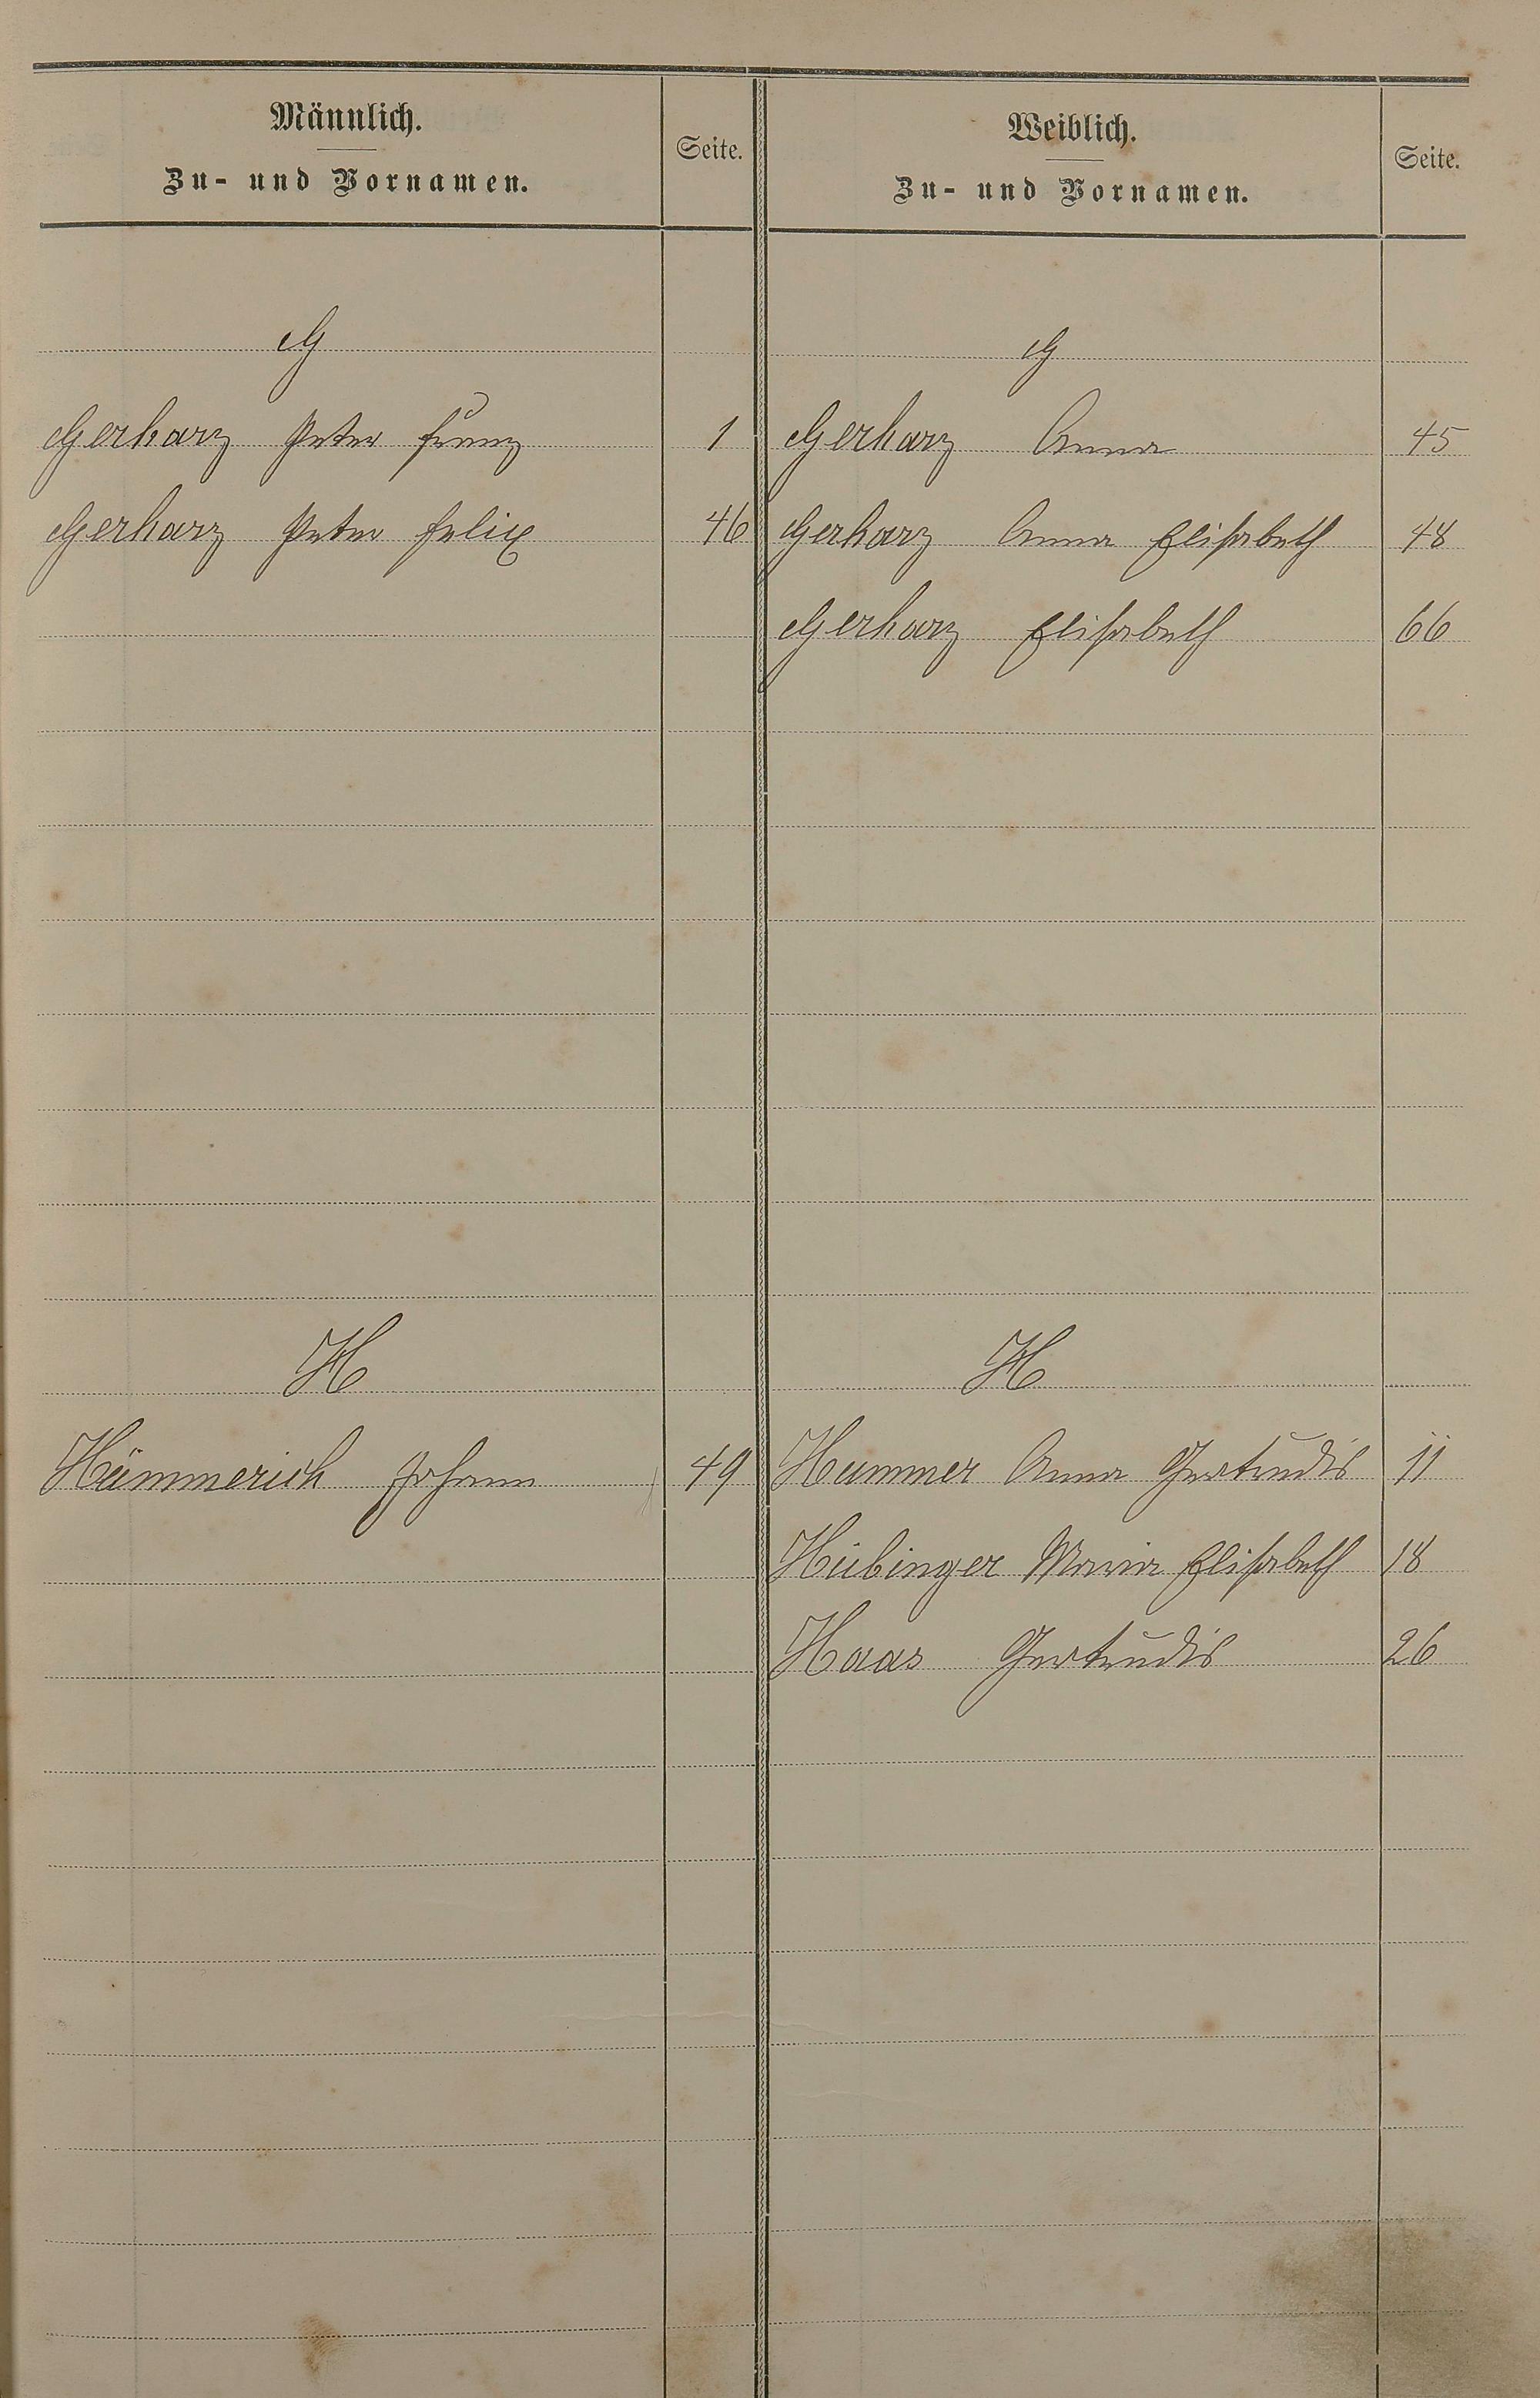 Männlich.
Zu- und Vornamen.
Seite.
Weiblich.
Zu- und Vornamen.
Seite.
G
G
Gerharz Peter Franz 1
Gerharz Anna 45
Gerharz Peter Felix 46
Gerharz Anna Elisabeth 48
Gerharz Elisabeth 66
H
H
Hümmerich Johann 49
Hummer Anna Gertrudis 11
Hübinger Maria Elisabeth 18
Haas Gertrudis 26